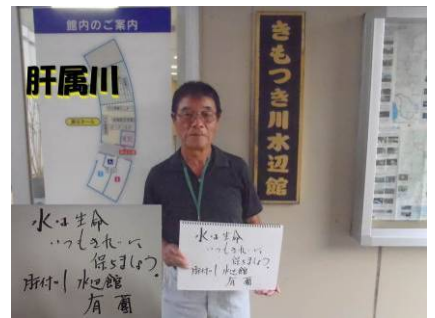 館内のご案内
肝属川
きもつき川水辺館
水は生命
いつもきれいに
保ちましょう。
肝付川 水辺館
有薗
水は生命
いつもきれいに
保ちましょう。
肝付川 水辺館
有薗